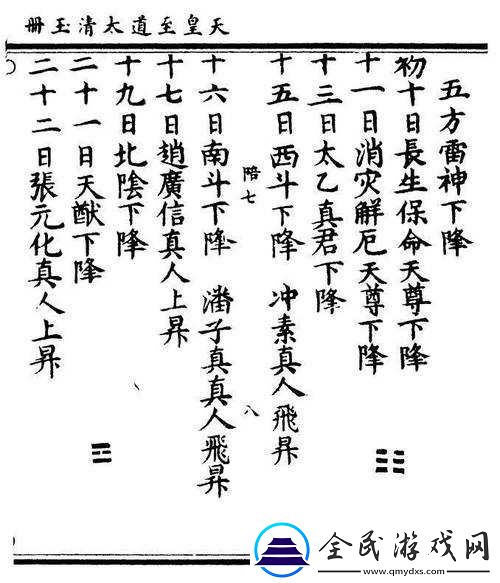 天皇至道太清玉冊
五方雷神下降
初十日長生保命天尊下降
十一日消灾解厄天尊下降
十三日太乙真君下降
十五日西斗下降 冲素真人飛昇
陪七
八
十六日南斗下降 潘子真真人飛昇
十七日趙廣信真人上昇
十九日北陰下降
二十一日天猷下降
二十二日張元化真人上昇
全民游戏网
www.qmydxs.com